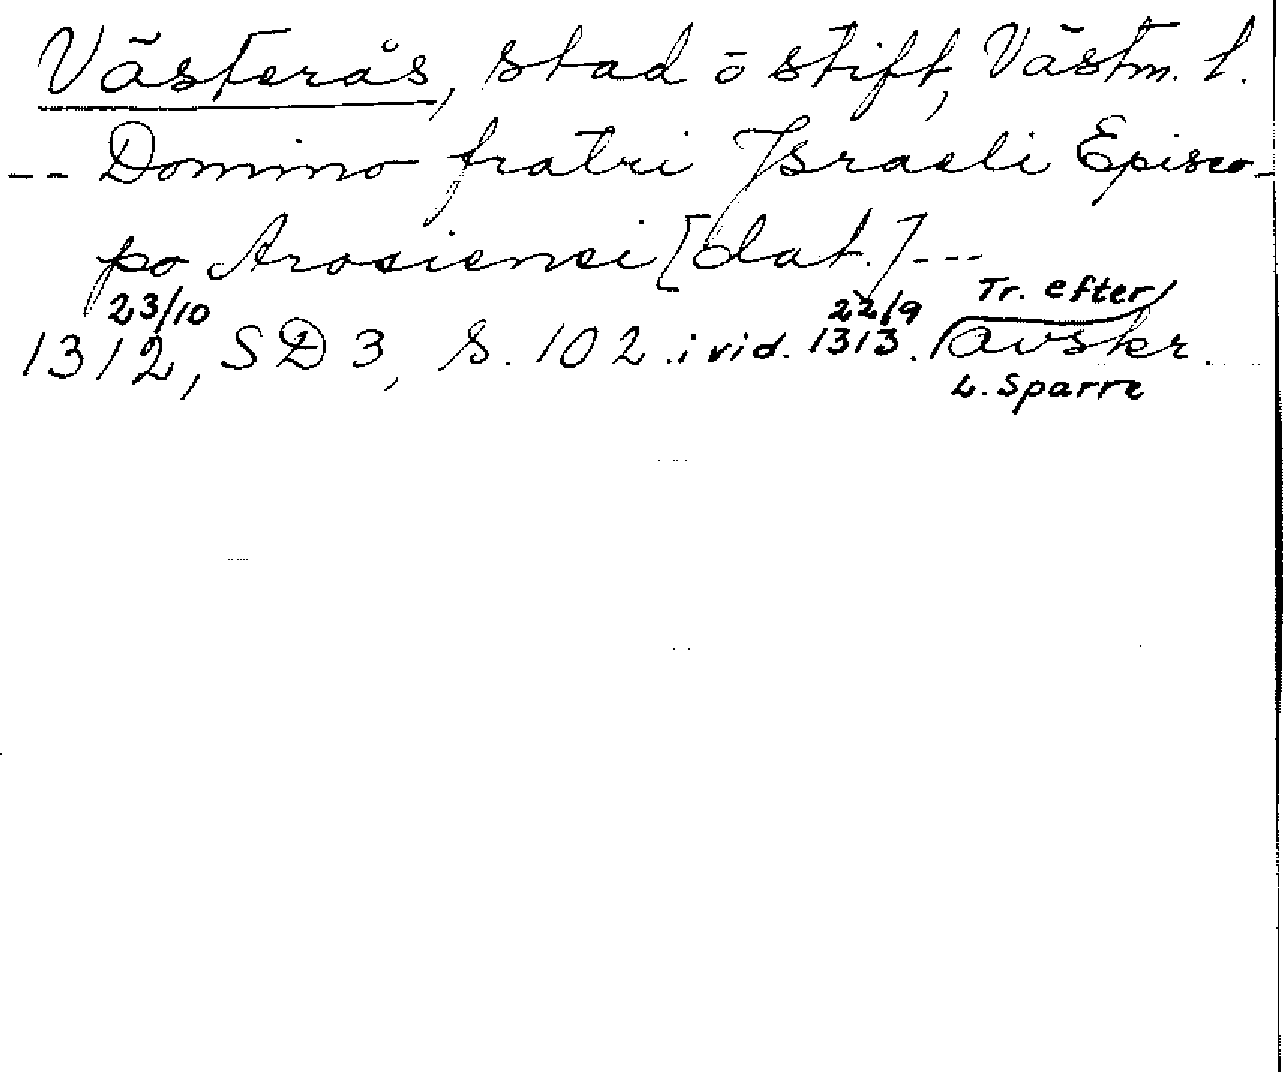 Västerås, stad o stift, Västm. l.
-- Domino fratri Israeli Episco-
po Arosiensi [dat.] ---
23/10 22/9 Tr. efter
1312, SD 3, S. 102 i vid. 1313. avskr.
L. Sparre